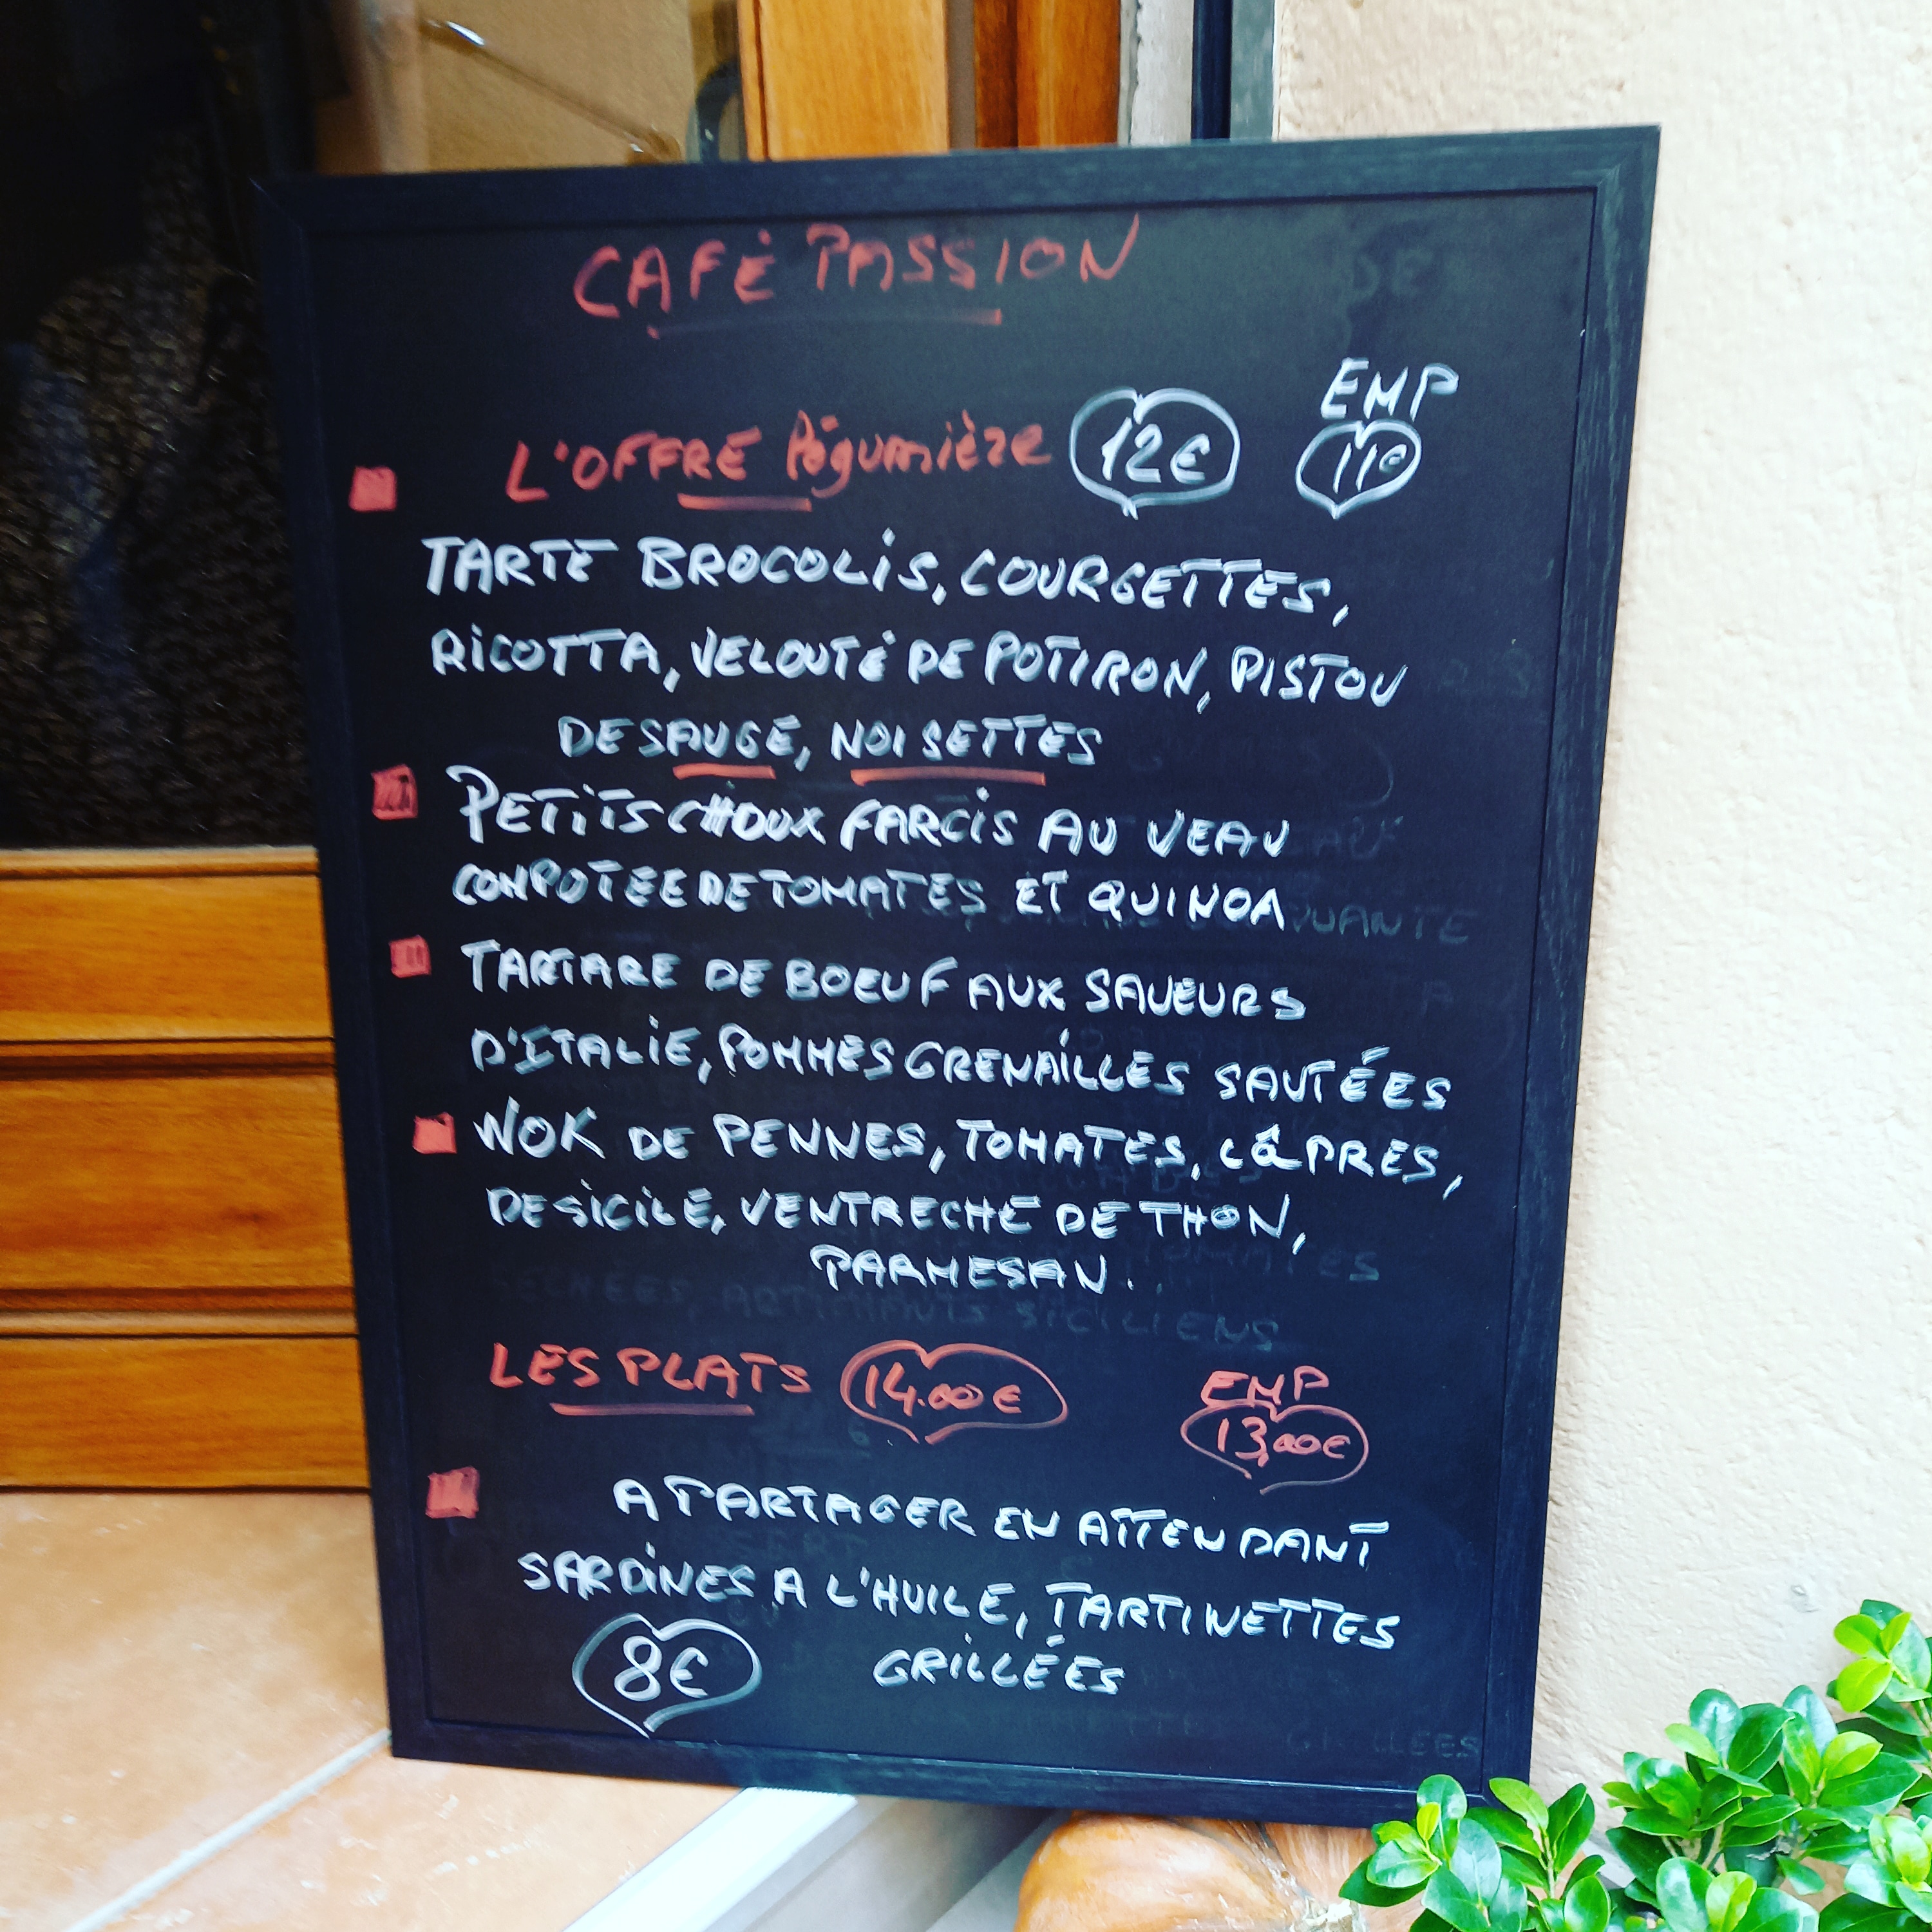 CAFÉ PASSION
EMP
L'OFFRE légumière 12€ 11€
TARTE BROCOLIS, COURGETTES,
RICOTTA, VELOUTÉ DE POTIRON, PISTOU
DE SAUGE, NOISETTES
PETITS CHOUX FARCIS AU VEAU
CONPOTEE DE TOMATES ET QUINOA
TARTARE DE BOEUF AUX SAVEURS
D'ITALIE, POMMES GRENAILLES SAUTÉES
WOK DE PENNES, TOMATES, CÂPRES,
DE SICILE, VENTRECHE DE THON,
PARMESAN.
LES PLATS 14.00€ EMP
13,00€
A PARTAGER EN ATTENDANT
SARDINES A L'HUILE, TARTINETTES
8€ GRILLÉES